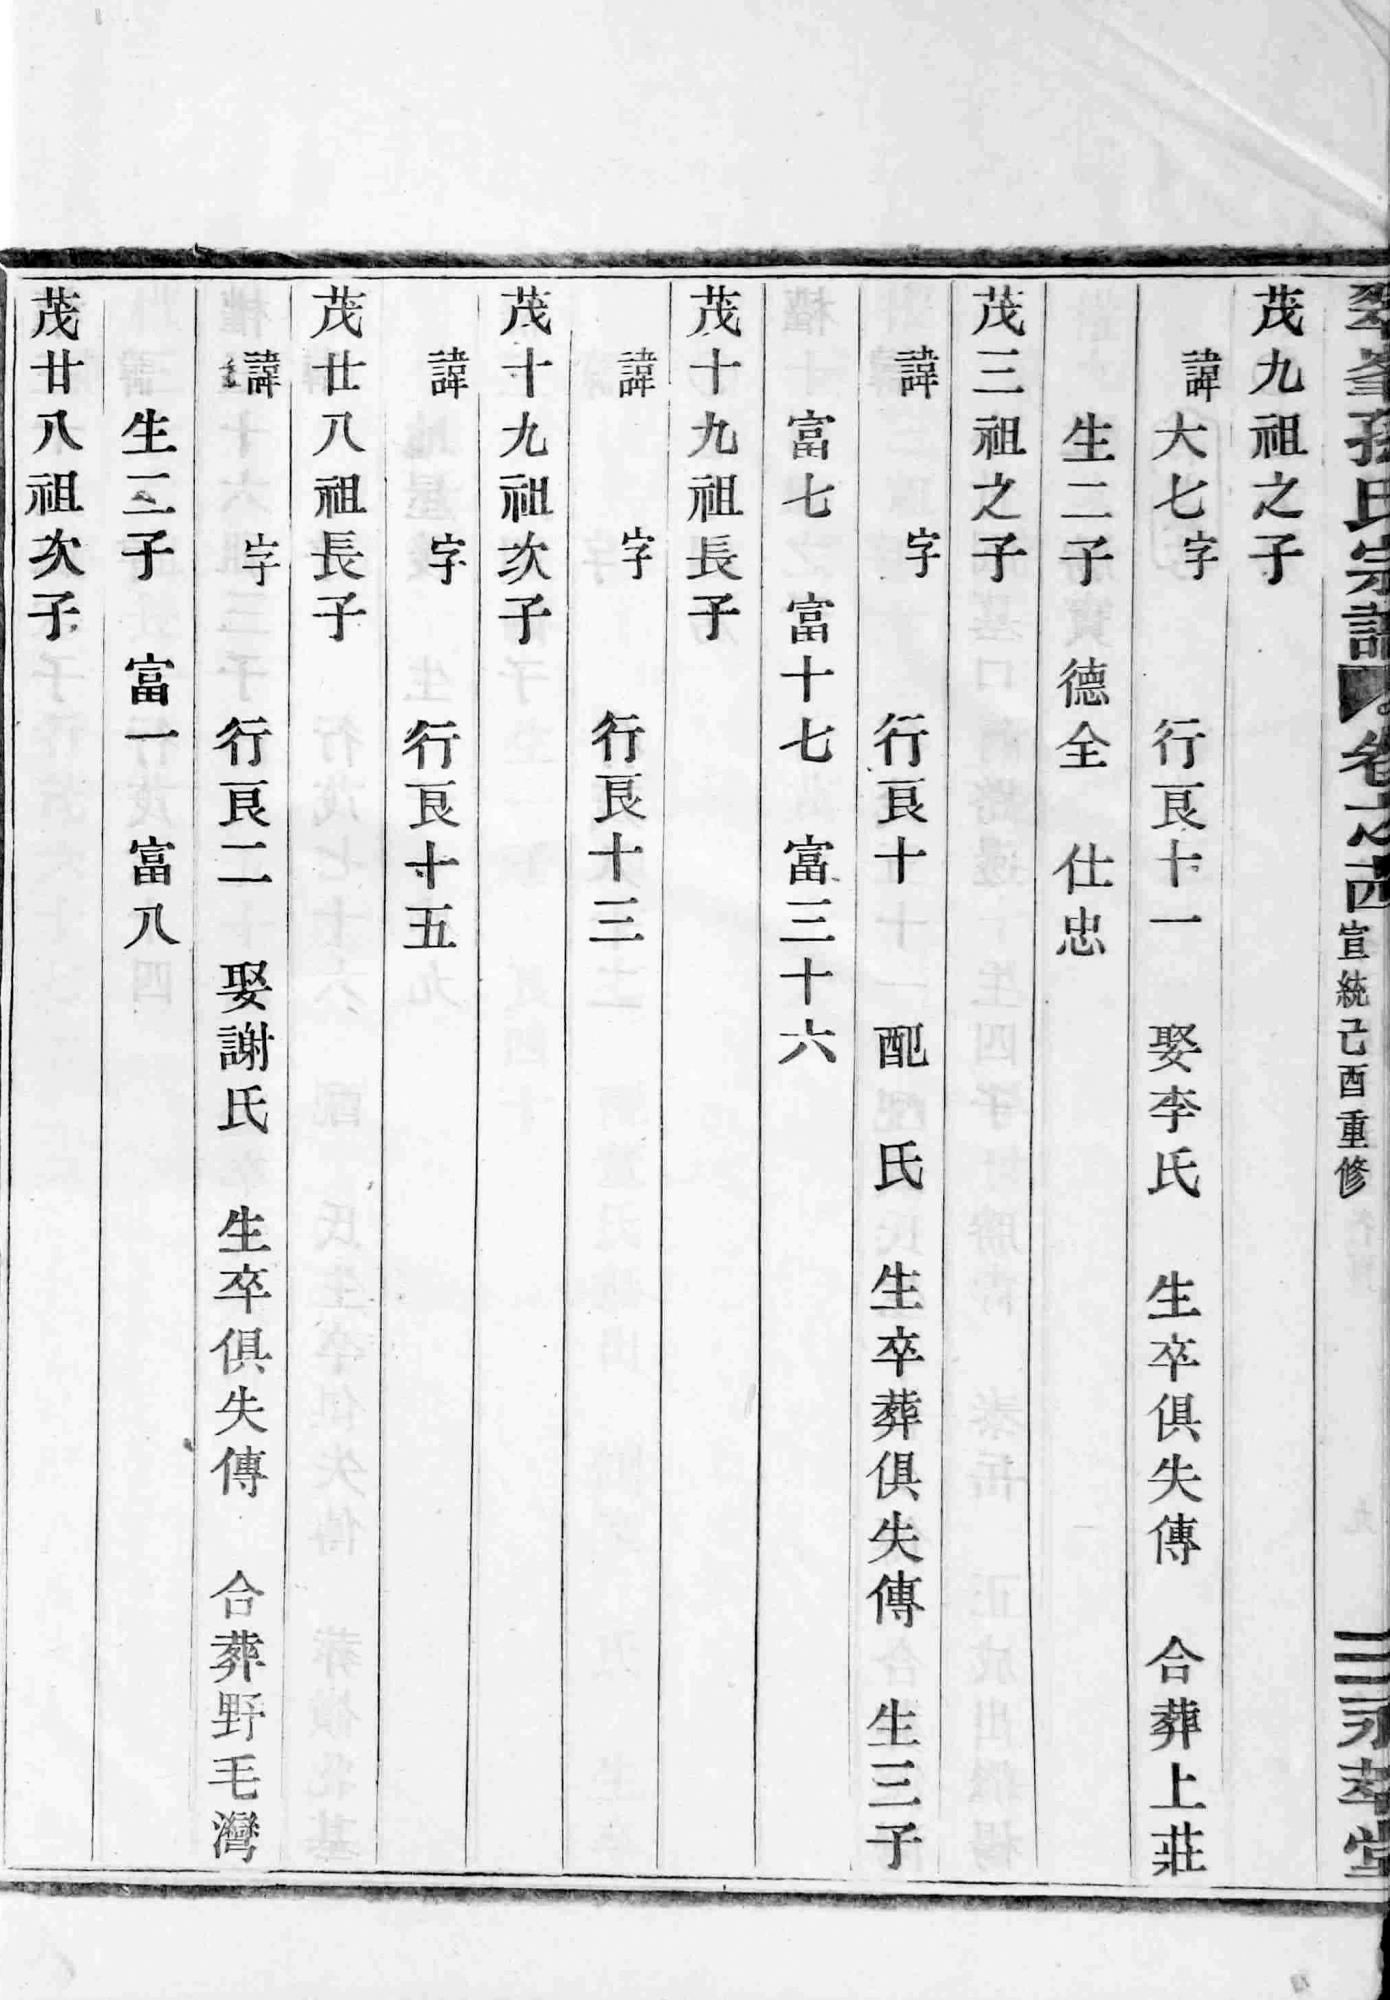 翠峯孫氏宗譜 卷之四 宣統己酉重修 永萃堂
茂九祖之子
諱大七字 行良十一 娶李氏 生卒俱失傳 合葬上莊
生二子 德全 仕忠
茂三祖之子
諱 字 行良十 配 氏 生卒葬俱失傳 生三子
富七 富十七 富三十六
茂十九祖長子
諱 字 行良十三
茂十九祖次子
諱 字 行良十五
茂廿八祖長子
諱 字 行良二 娶謝氏 生卒俱失傳 合葬野毛灣
生二子 富一 富八
茂廿八祖次子